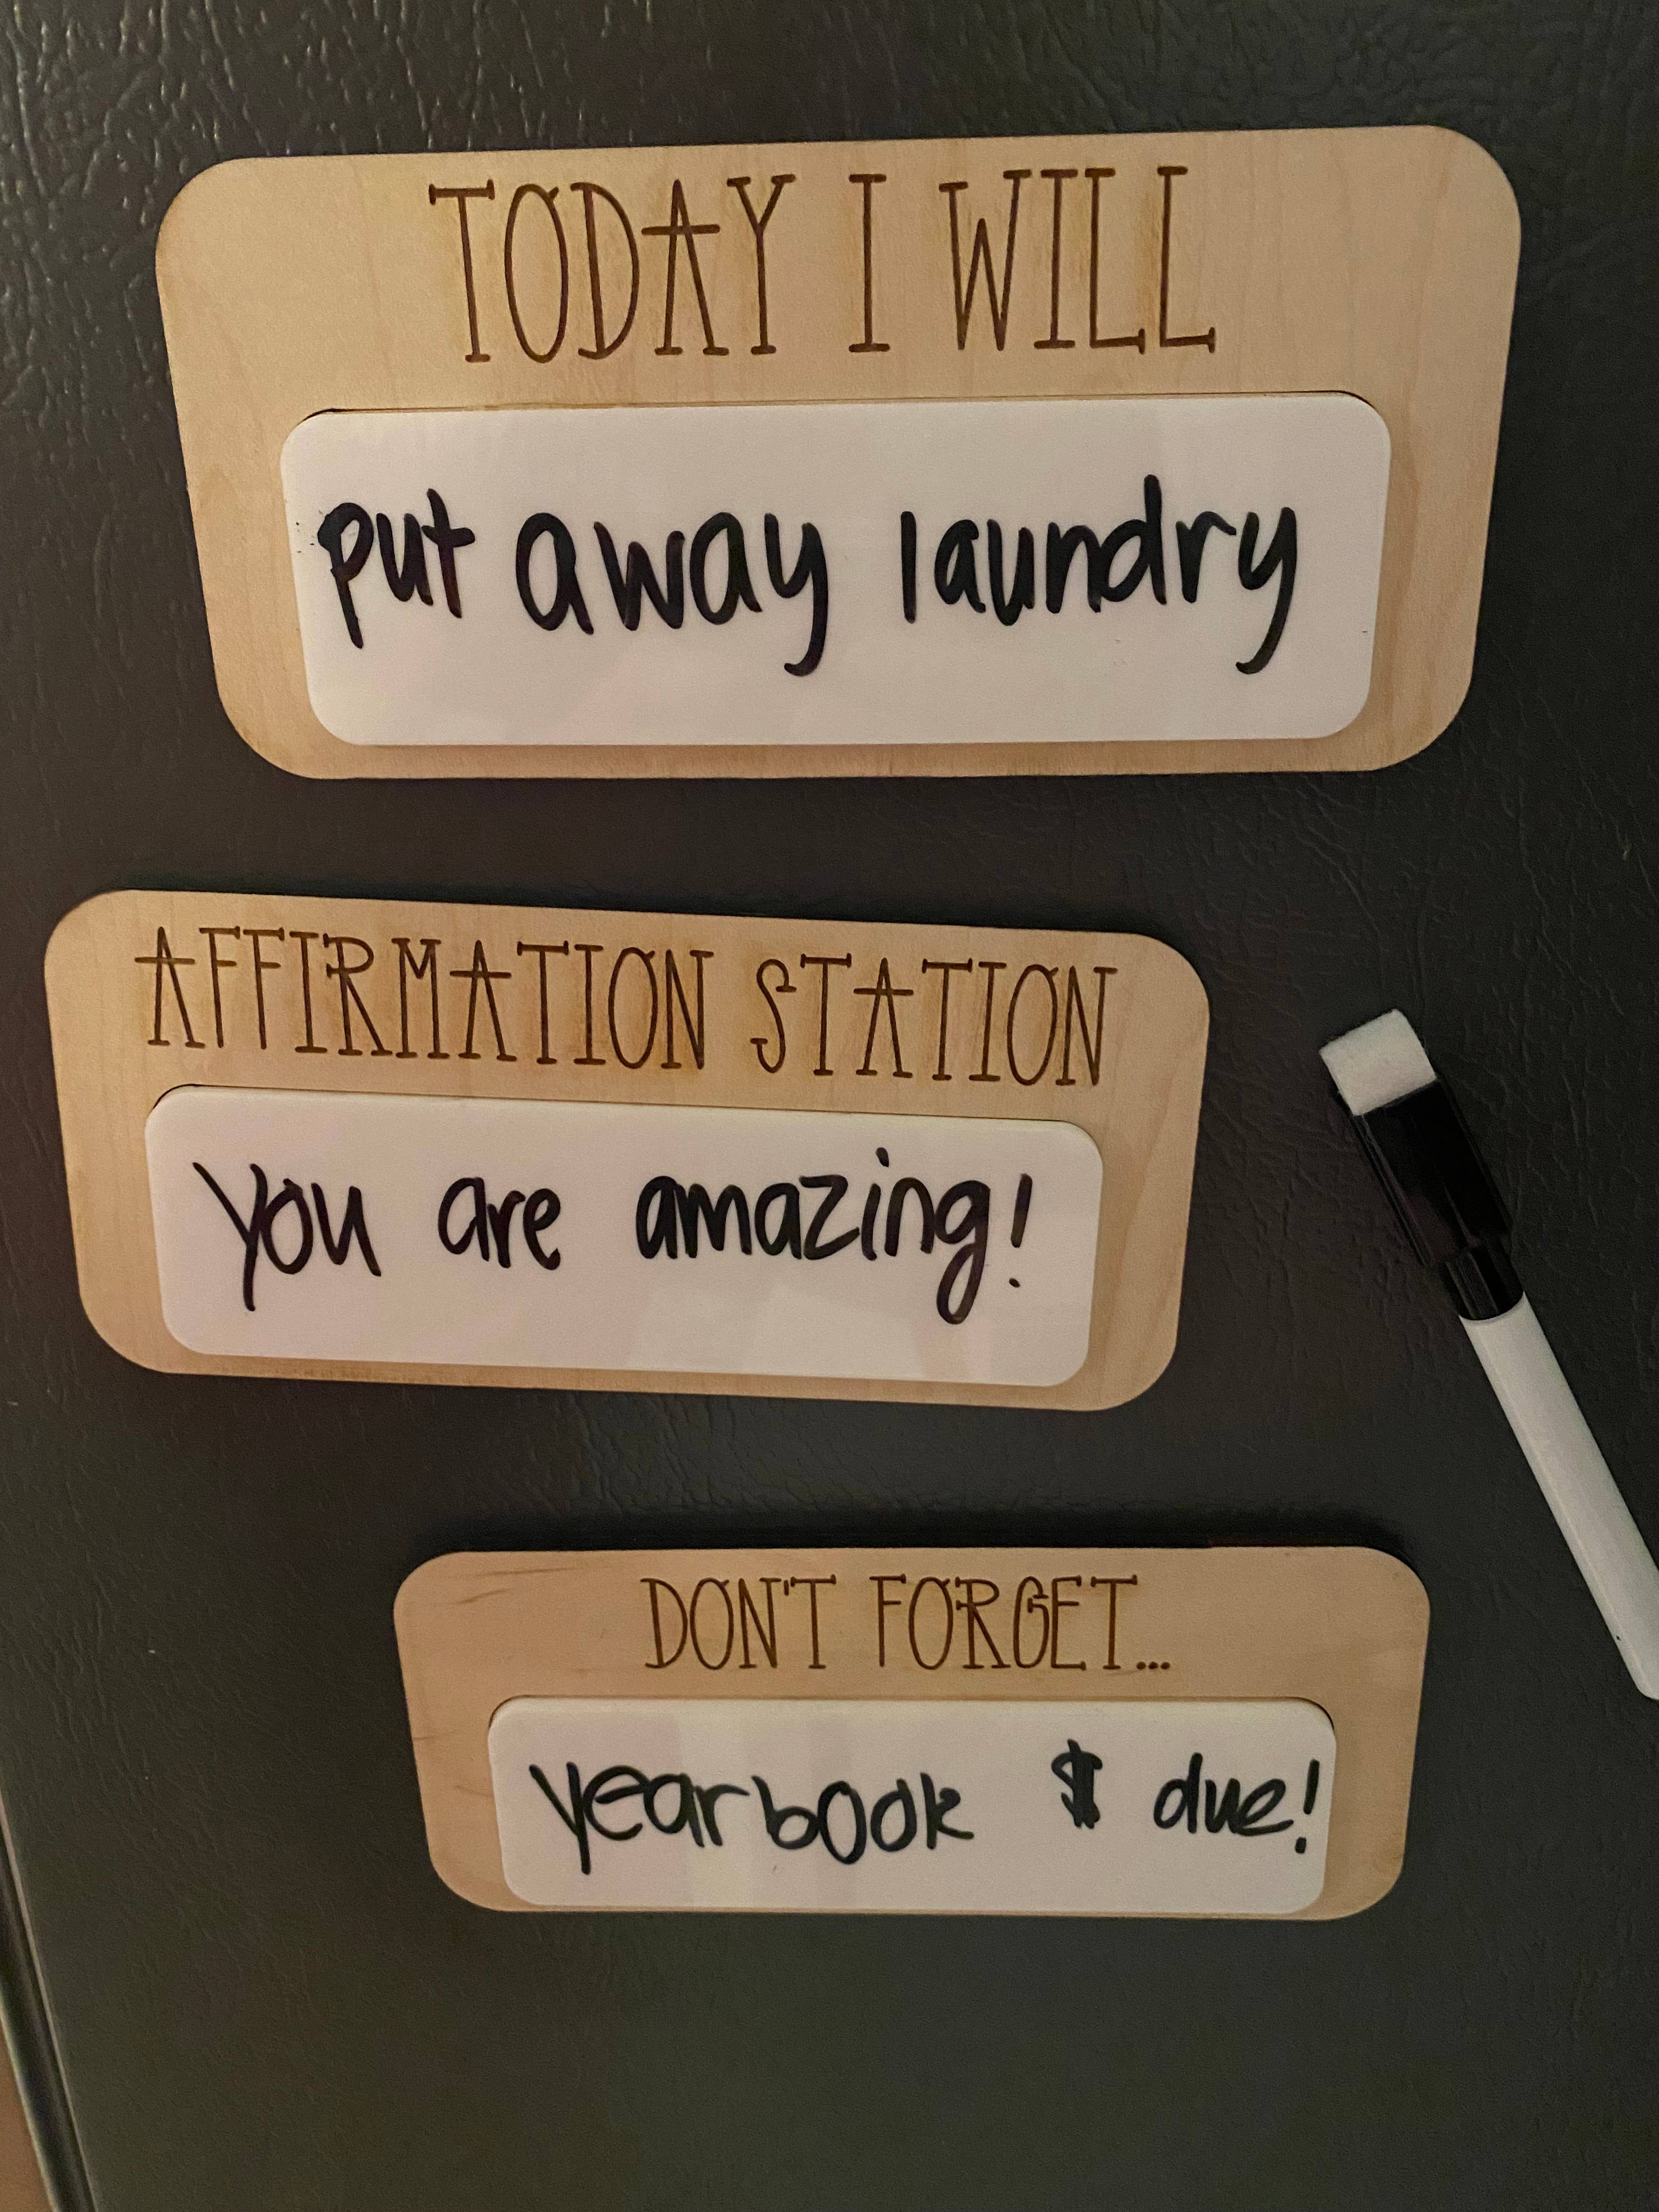 TODAY I WILL
put away laundry
AFFIRMATION STATION
you are amazing!
DON'T FORGET...
yearbook $ due!